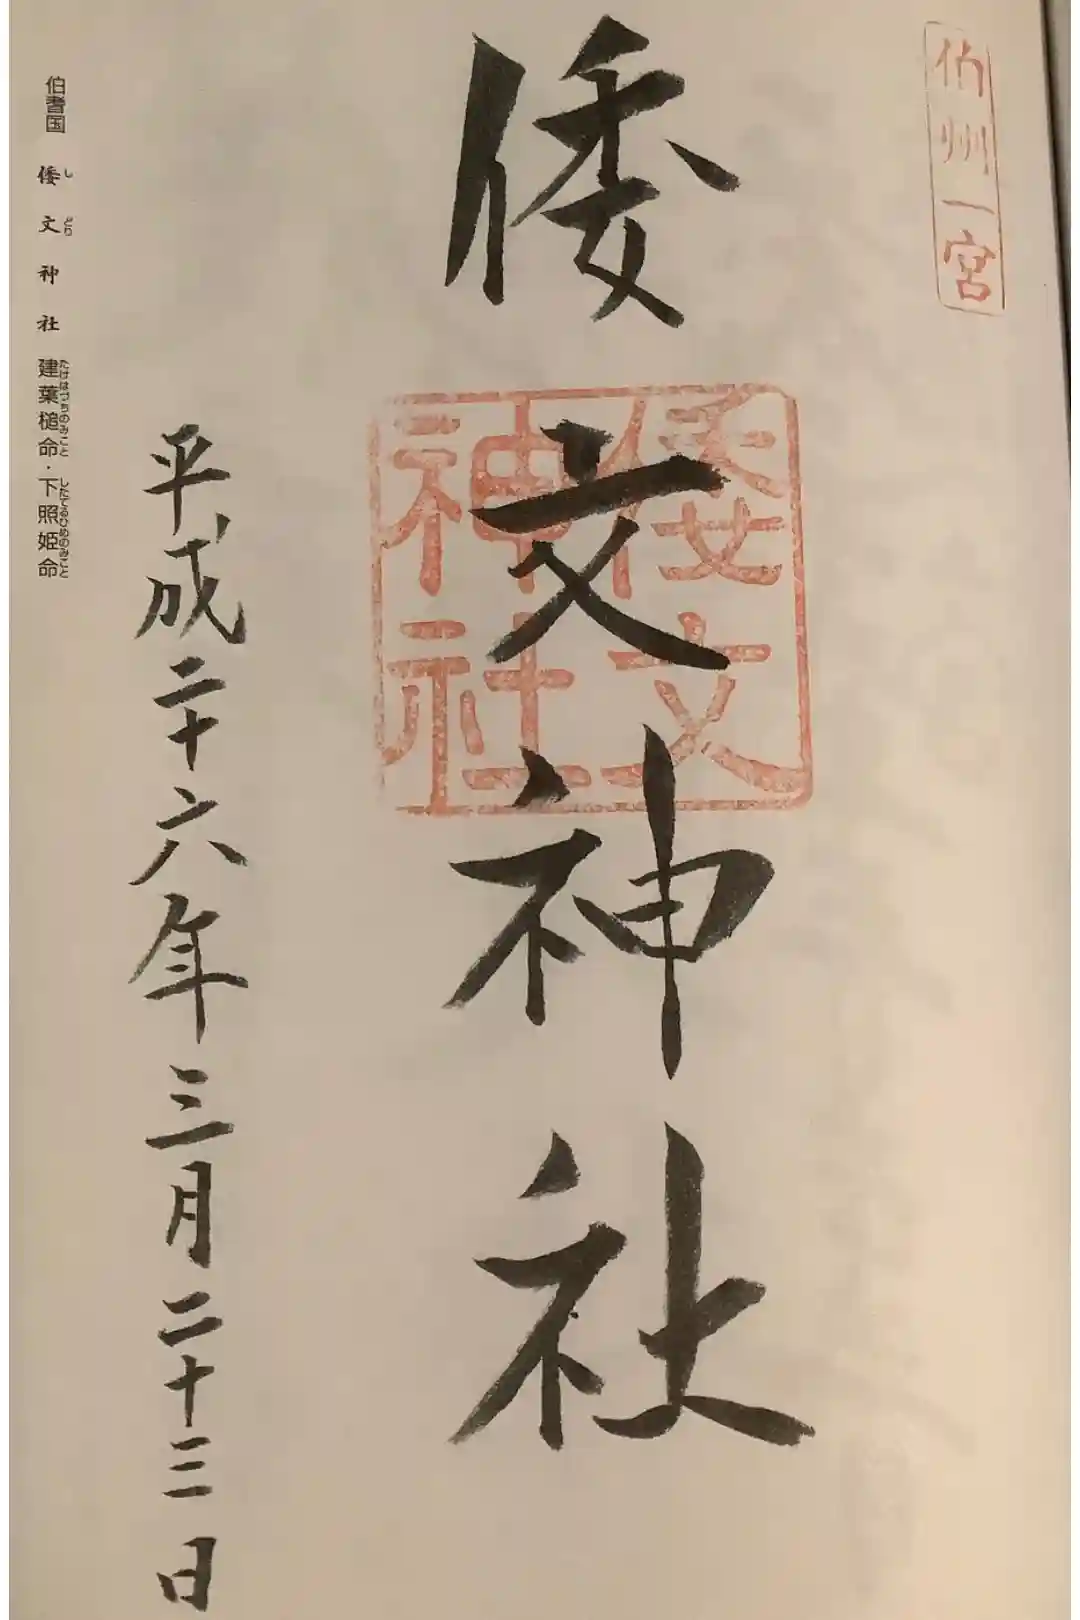 伯州一宮
倭文神社
倭文神社
平成二十六年三月二十三日
伯耆国 倭文神社 建葉槌命・下照姫命
し どり たけはづちのみこと したてるひめのみこと